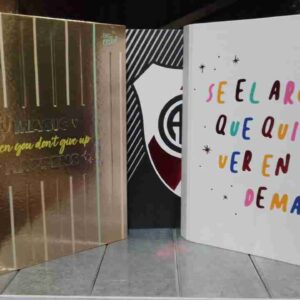 MAGIC
en you don't give up
SE EL AR
QUE QUI
VER EN
DEMA